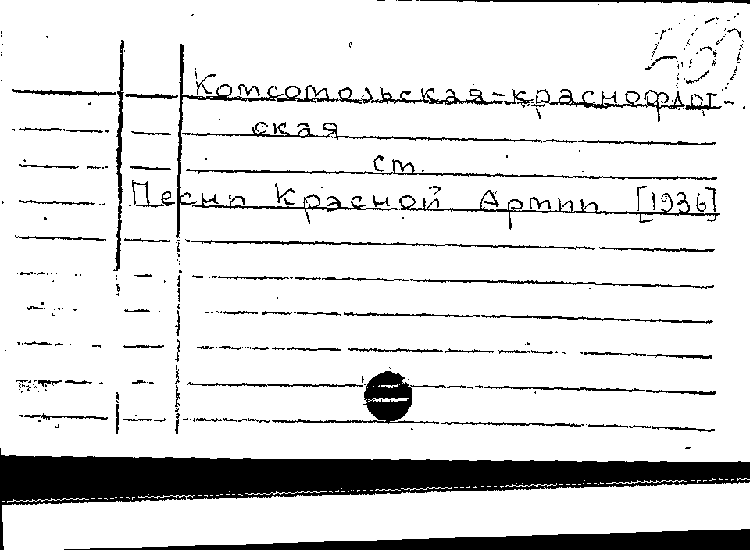 Комсомольская-краснофлот-
ская
ст.
Песни Красной Армии [1936]